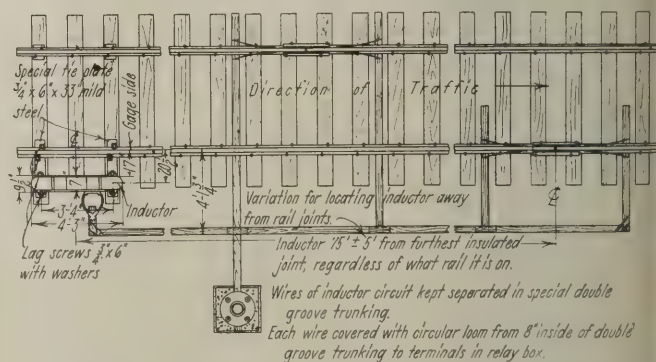 Special tie plate
3/4" x 6" x 33" mild
steel
Gage side
Direction of Traffic
9 1/2"
7"
20 1/2"
4'-4 3/4"
3'-4"
4'-3"
Inductor
Lag screws 3/4" x 6"
with washers
Variation for locating inductor away
from rail joints.
Inductor 75' ± 5' from furthest insulated
joint, regardless of what rail it is on.
Wires of inductor circuit kept seperated in special double
groove trunking.
Each wire covered with circular loom from 8" inside of double
groove trunking to terminals in relay box.